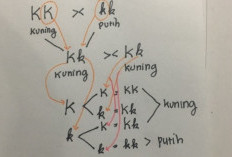 KK × kk
kuning putih
Kk >< Kk
kuning kuning
K < K · KK
k · Kk
k < K · Kk
k · kk > putih
kuning